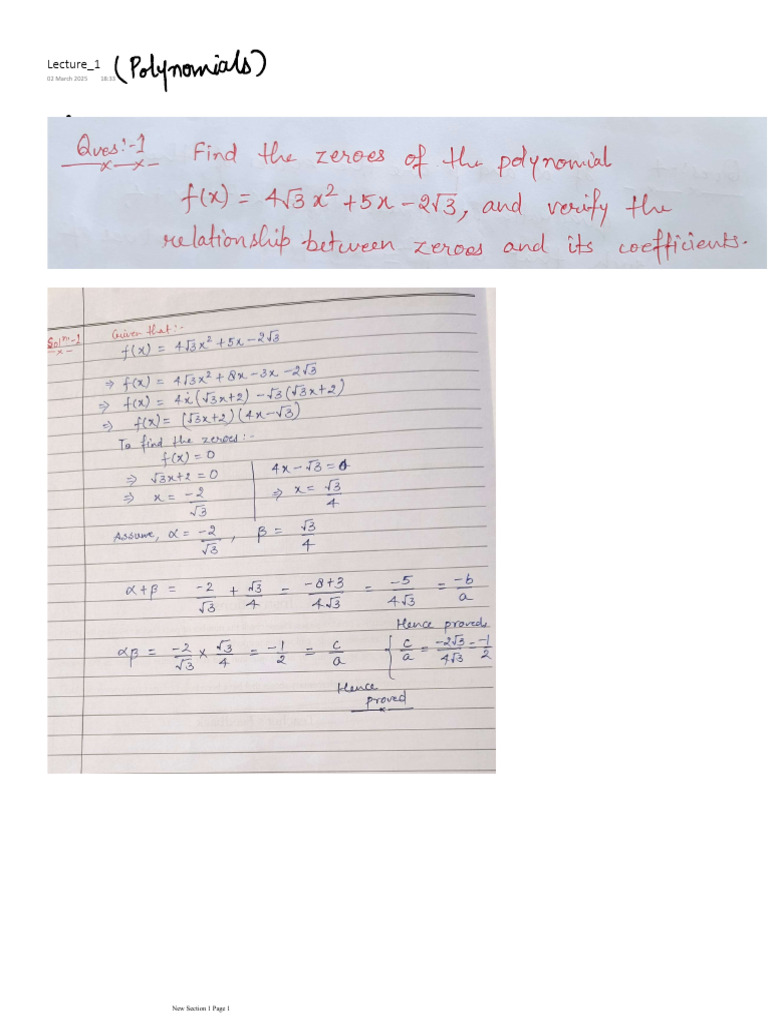 Lecture_1 (Polynomials)
02 March 2025 18:33
Ques:-1 Find the zeroes of the polynomial
f(x) = 4√3 x² + 5x - 2√3, and verify the
relationship between zeroes and its coefficients.
Solⁿ-1 Given that:-
f(x) = 4√3x² + 5x - 2√3
⇒ f(x) = 4√3x² + 8x - 3x - 2√3
⇒ f(x) = 4x(√3x+2) - √3(√3x+2)
⇒ f(x) = (√3x+2)(4x-√3)
To find the zeroes:-
f(x) = 0
⇒ √3x+2 = 0 | 4x-√3 = 0
⇒ x = -2/√3 | ⇒ x = √3/4
Assume, α = -2/√3, β = √3/4
α+β = -2/√3 + √3/4 = -8+3/4√3 = -5/4√3 = -b/a
Hence proved
αβ = -2/√3 × √3/4 = -1/2 = c/a { c/a = -2√3/4√3 = -1/2
Hence
proved
New Section 1 Page 1